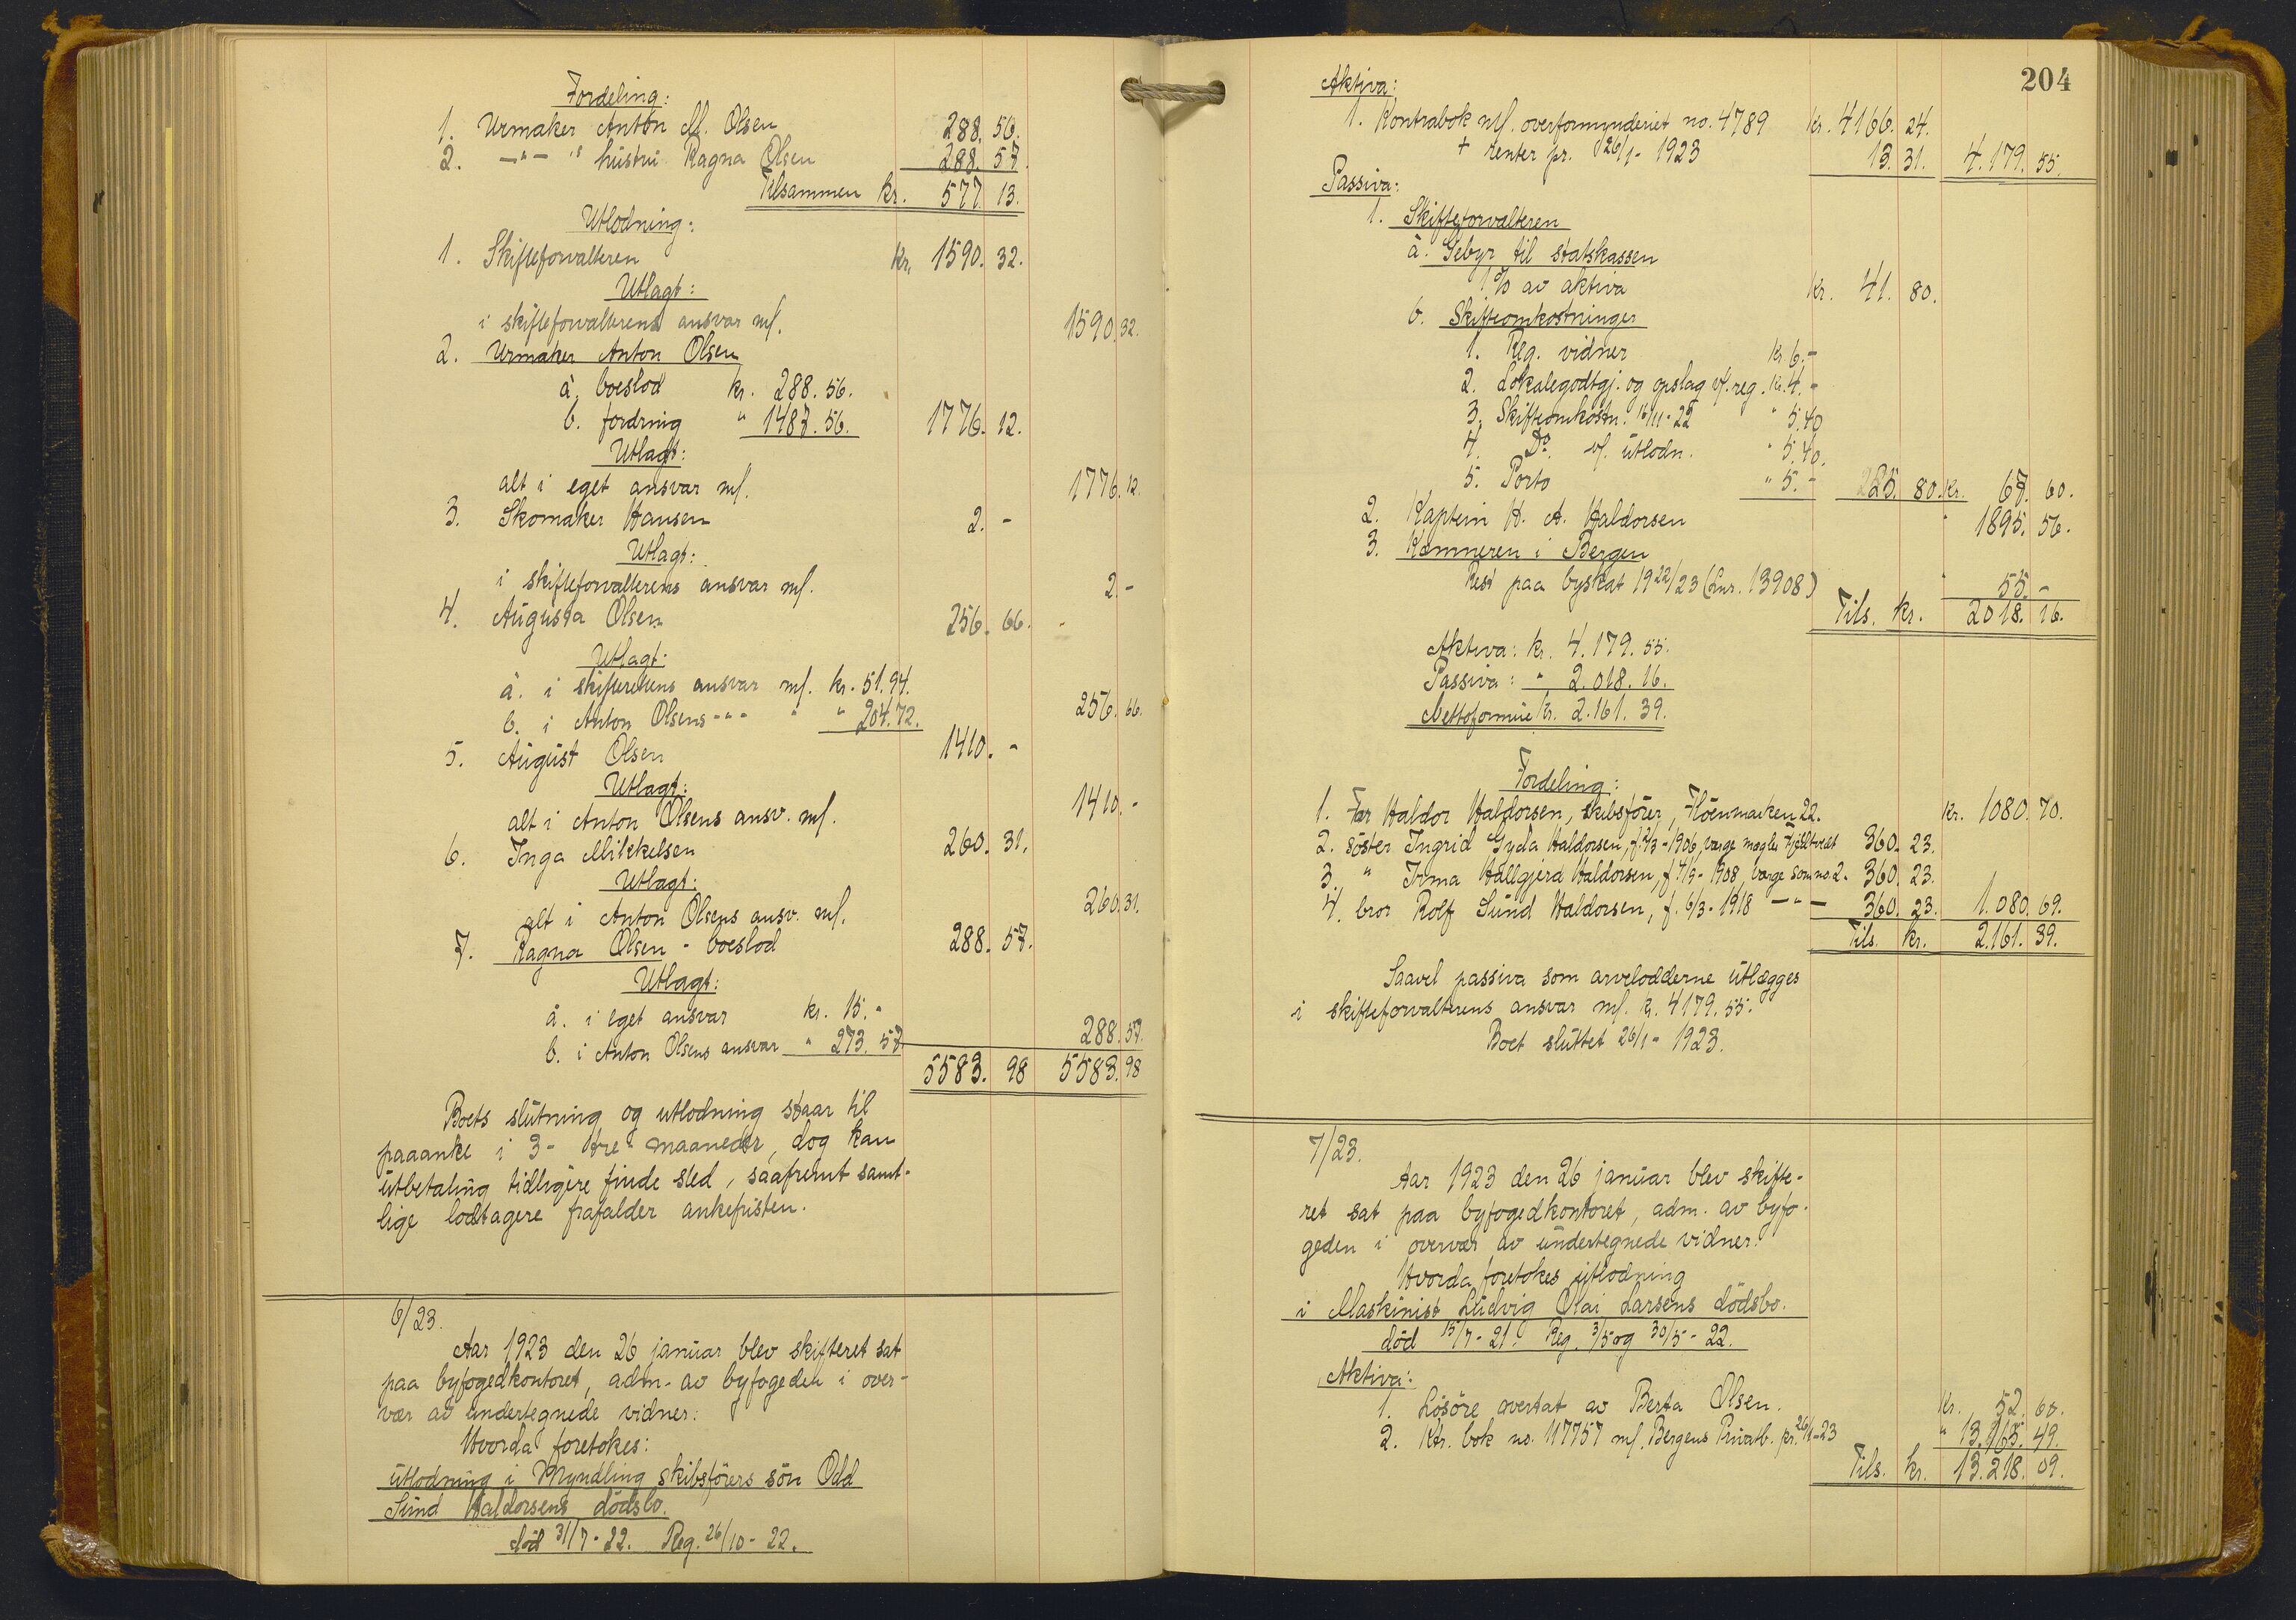 Fordeling:
1. Urmaker Anton M. Olsen 288. 56.
2. —"— 's hustru Ragna Olsen 288. 57.
Tilsammen kr. 577. 13.
Utlodning:
1. Skifteforvalteren kr. 1590. 32.
Utlagt:
i skifteforvalterens ansvar m/. 1590. 32.
2. Urmaker Anton Olsen
a. boeslod kr. 288. 56.
b. fordring " 1487. 56. 1776. 12.
Utlagt:
alt i eget ansvar m/. 1776. 12.
3. Skomaker Hansen 2. -
Utlagt:
i skifteforvalterens ansvar m/. 2. -
4. Augusta Olsen 256. 66.
Utlagt:
a. i skifterettens ansvar m/. kr. 51.94.
b. i Anton Olsens -"- " " 204.72. 256. 66.
5. August Olsen 1410. -
Utlagt:
alt i Anton Olsens ansv. m/. 1410. -
6. Inga Mikkelsen 260. 31.
Utlagt:
alt i Anton Olsens ansv. m/. 260. 31.
7. Ragna Olsen - boeslod 288. 57.
Utlagt:
a. i eget ansvar kr. 15. -
b. i Anton Olsens ansvar " 273. 57 288. 57.
5583. 98 5583. 98
Boets slutning og utlodning staar til
paaanke i 3 - tre - maaneder, dog kan
utbetaling tidligere finde sted, saafremt samt-
lige lodtagere frafalder ankefristen.
6/23.
Aar 1923 den 26 januar blev skifteret sat
paa byfogedkontoret, adm. av byfogeden i over-
vær av undertegnede vidner:
Hvorda foretokes:
utlodning i Myndling skibsförers sön Odd
Sund Haldorsens dödsbo.
död 31/7 - 22. Reg. 26/10 - 22.
204
Aktiva:
1. Kontrabok m/. overformynderiet no. 4789 Kr. 4166. 24.
+ renter pr. 26/1 - 1923 13. 31. 4.179. 55.
Passiva:
1. Skifteforvalteren
a. Gebyr til statskassen
1% av aktiva Kr. 41. 80.
b. Skifteomkostninger
1. Reg. vidner kr 6. -
2. Lokalegodtgj. og opslag v/. reg. kr. 4. -
3. Skifteomkostn. 16/11 - 22 " 5.40
4. Do. v/. utlodn. " 5.40.
5. Porto " 5. - 25. 80. Kr. 67. 60.
2. Kaptein H. A. Haldorsen " 1895. 56.
3. Kæmneren i Bergen
Rest paa byskat 1922/23 (Lnr. 13908) " 55. -
Tils. kr. 2018. 16.
Aktiva: kr. 4.179. 55.
Passiva: " 2.018. 16.
Nettoformue Kr. 2.161. 39.
Fordeling:
1. Far Haldor Haldorsen, skibsförer, Flöenmarken 22. Kr. 1080. 70.
2. söster Ingrid Gyda Haldorsen, 1906, værge megler Fjeldtvedt 360. 23.
3. " Irma Hallgjerd Haldorsen, f. 4/9 - 1908 værge som no. 2. 360. 23.
4. bror Rolf Sund Haldorsen, f. 6/3 - 1918 —"— 360. 23. 1.080. 69.
Tils. kr. 2.161. 39.
Saavel passiva som arvelodderne utlægges
i skifteforvalterens ansvar m/. kr. 4179. 55.
Boet sluttet 26/1 - 1923.
7/23.
Aar 1923 den 26 januar blev skifte-
ret sat paa byfogedkontoret, adm. av byfo-
geden i overvær av undertegnede vidner:
Hvorda foretokes utlodning
i Maskinist Ludvig Olai Larsens dödsbo.
död 15/7 - 21. Reg. 3/5 og 30/5 - 22.
Aktiva:
1. Lösöre overtat av Berta Olsen. Kr. 52. 60.
2. Ktr. bok no. 117757 m/. Bergens Privatb. pr. 26/1 - 23 " 13.165. 49.
Tils. kr. 13.218. 09.